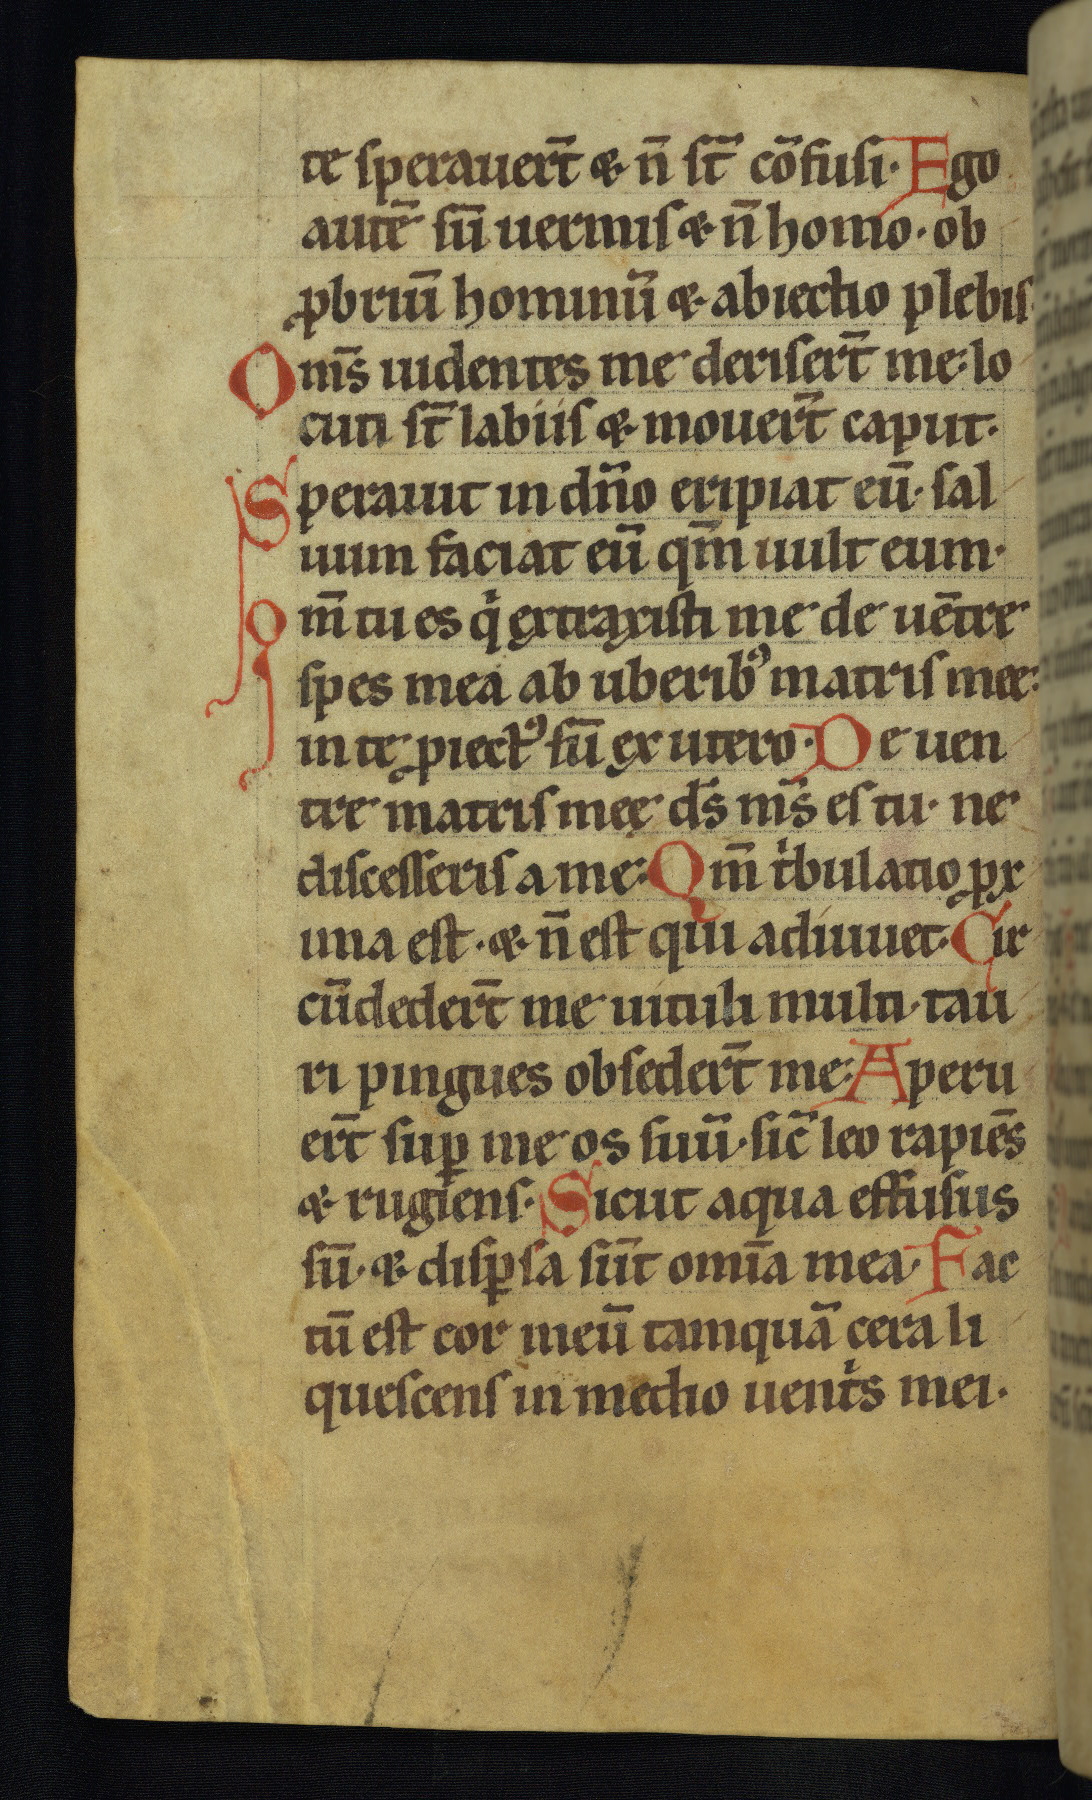 te sperauert̄ ⁊ n̄ st̄ cōfusi· Ego
autē sū uermis ⁊ n̄ homo· ob
ꝓbriū hominū ⁊ abiectio plebis·
Om̄s uidentes me deriserūt me: lo
cuti st̄ labiis ⁊ mouert̄ caput·
Sperauit in dn̄o eripiat eū· sal
uum faciat eū qm̄ uult eum·
Qm̄ tu es qͥ extraxisti me de uētre
spes mea ab uberibꝰ matris mee:
in te ꝓiectꝰ sū ex utero· De uen
tre matris meę ds̄ ms̄ es tu· ne
discesseris a me: Qm̄ tͥbulatio ꝓx
una est· ⁊ n̄ est qui adiuuet· Cir
cūdedert̄ me uituli multi· tau
ri pingues obsedert̄ me: Aperu
ert̄ suꝑ me os suū· sic̄ leo rapiēs
⁊ rugiens· Sicut aqua effusus
sū· ⁊ disꝑsa sūt omīa mea· Fac
tū est cor meū tamquā cera li
quescens in medio uentͥs mei·